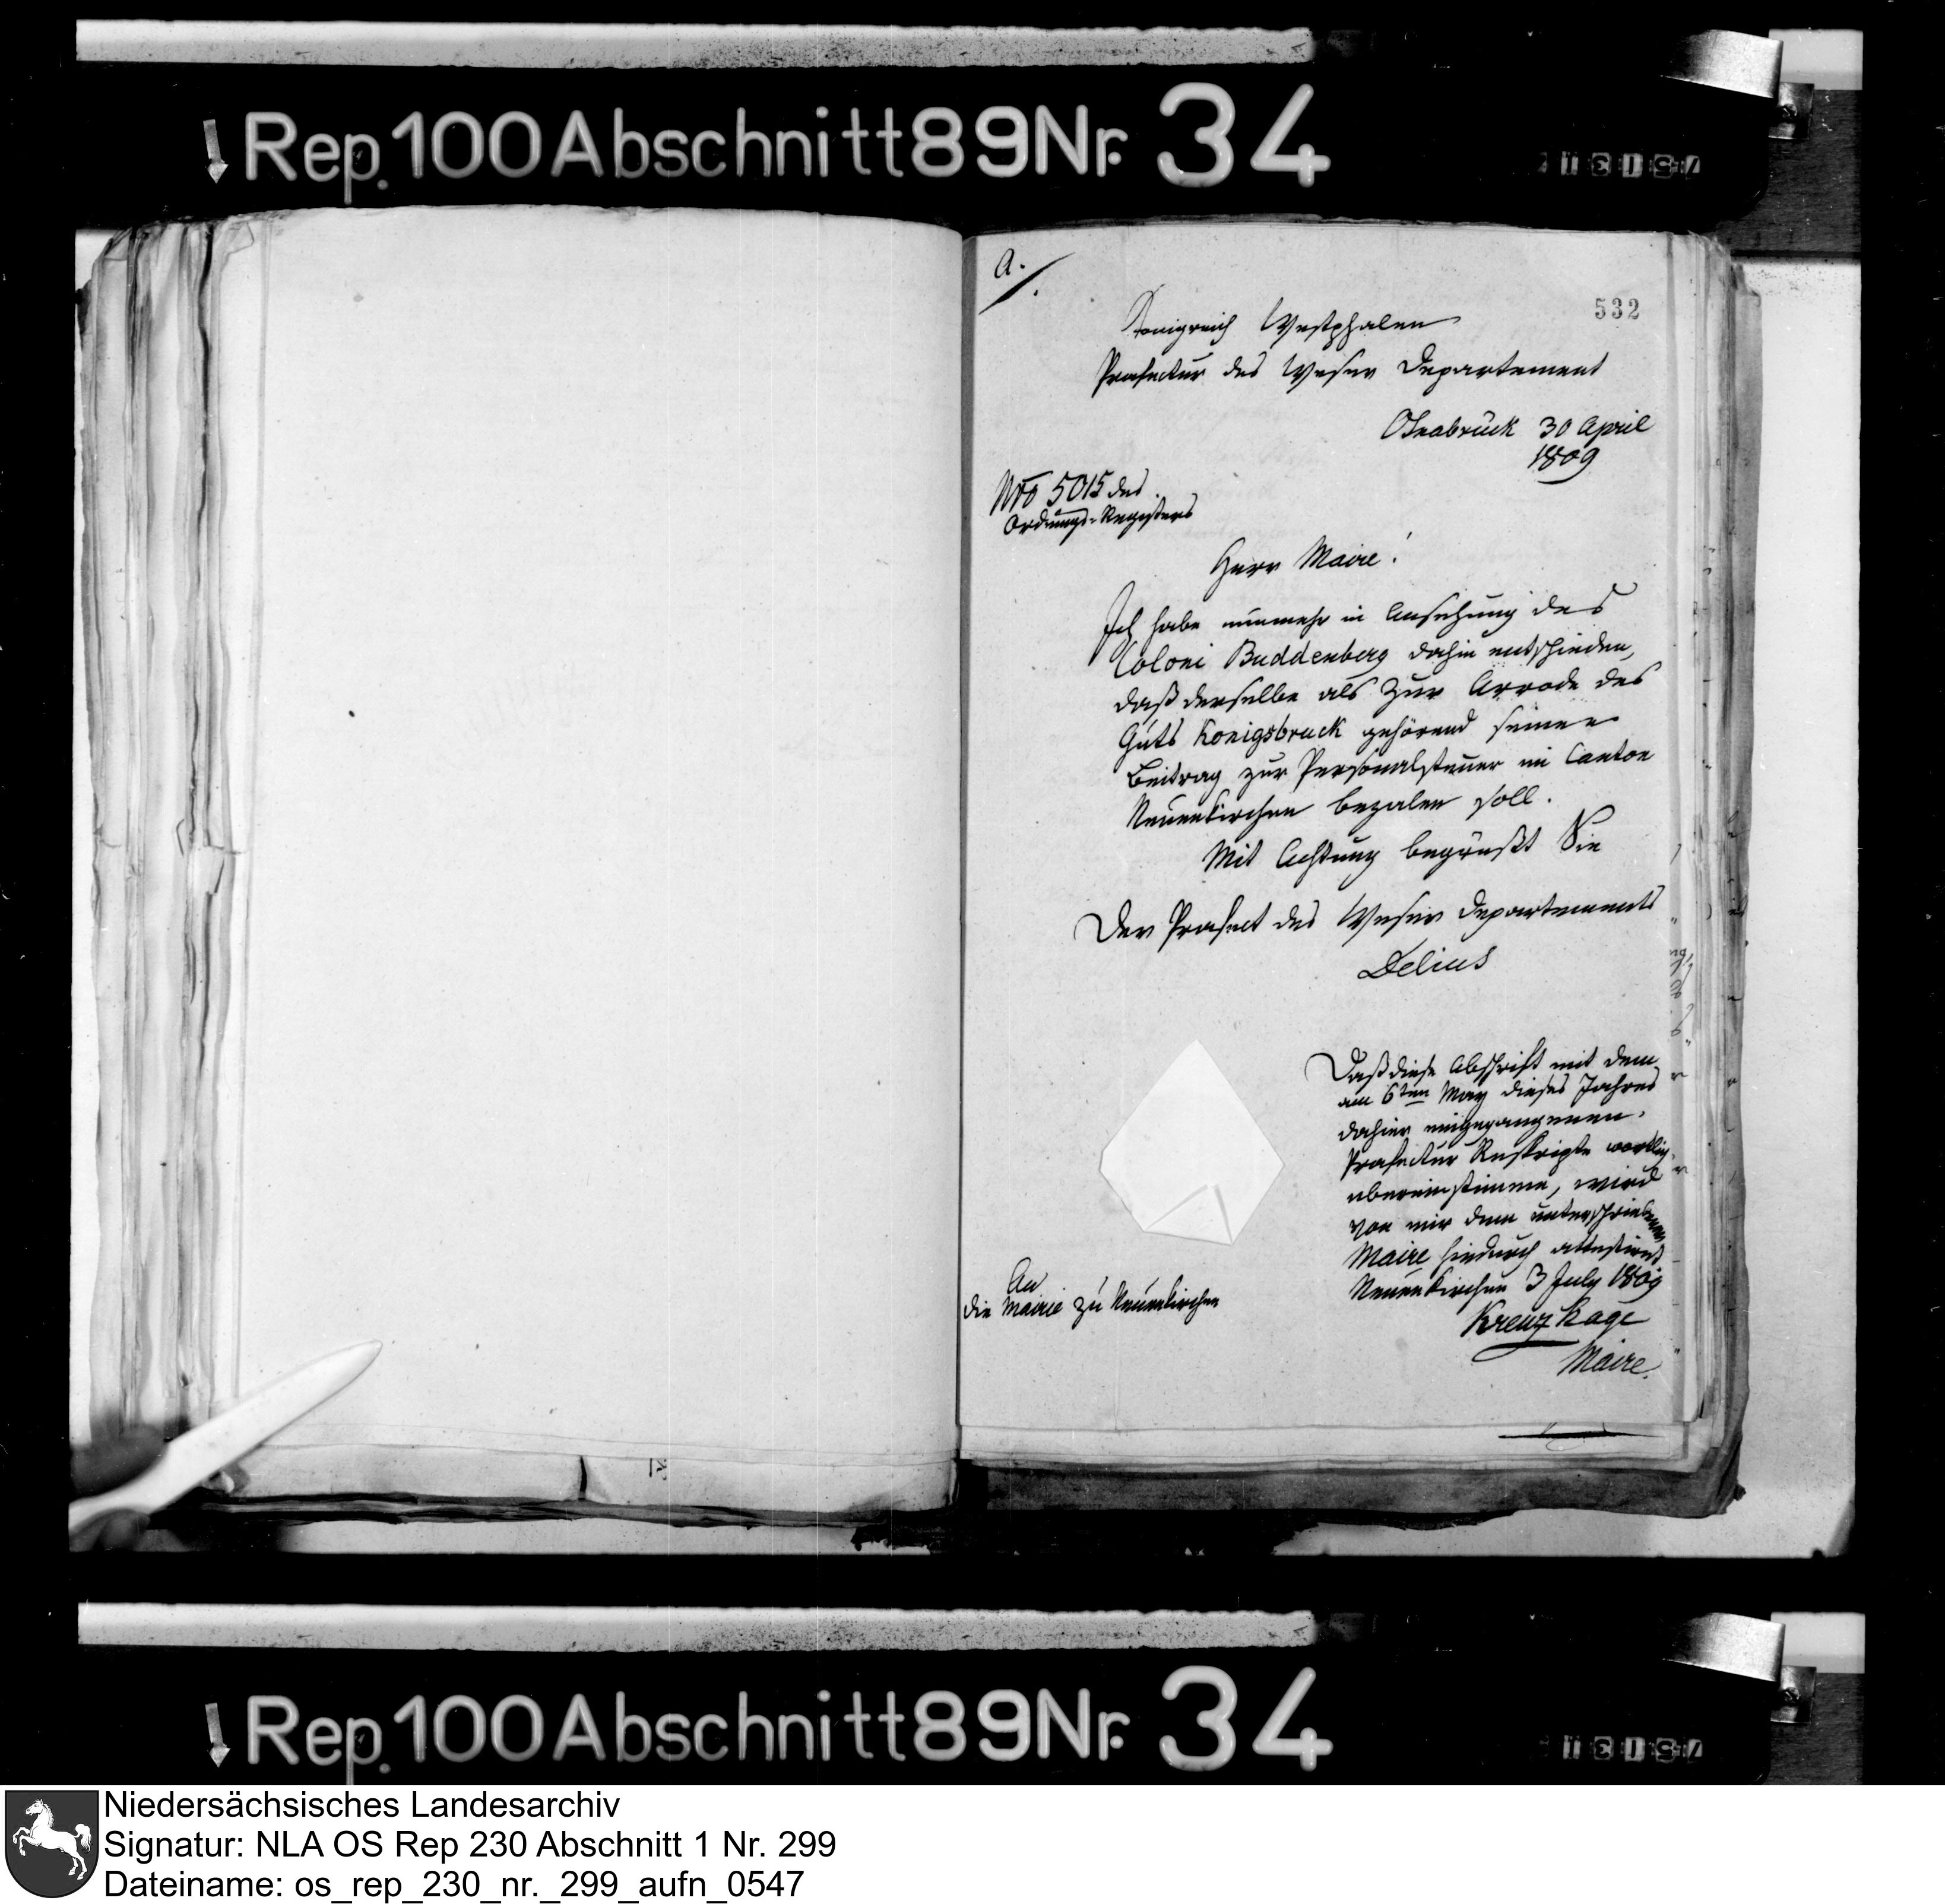 Rep. 100 Abschnitt 89 Nr. 34
a.
532
Königreich Westphalen
Praefectur des Weser Departement
Osnabrück 30 April
1809
Nro 5015 des
Ordnungs-Registers
Herr Maire!
Ich habe nunmehr in Ansehung des
Coloni Buddenberg dahin entschieden,
daß derselbe als zur Arrode des
Guts Konigsbruck gehörend seinen
Beitrag zur Personalsteuer im Canton
Neuenkirchen bezalen soll.
Mit Achtung begrüßt Sie
Der Praefect des Weser Departements
Delius
Daß diese Abschrift mit dem
am 6ten May dieses Jahres
dahier eingegangenen
Praefectur Reskripte wortlich
ubereinstimme, wird
von mir dem unterschriebenen
Maire hiedurch attestirt
Neuenkirchen 3 July 1809
Kreuzhage
Maire.
An
die Mairie zu Neuenkirchen
Rep. 100 Abschnitt 89 Nr. 34
Niedersächsisches Landesarchiv
Signatur: NLA OS Rep 230 Abschnitt 1 Nr. 299
Dateiname: os_rep_230_nr._299_aufn_0547